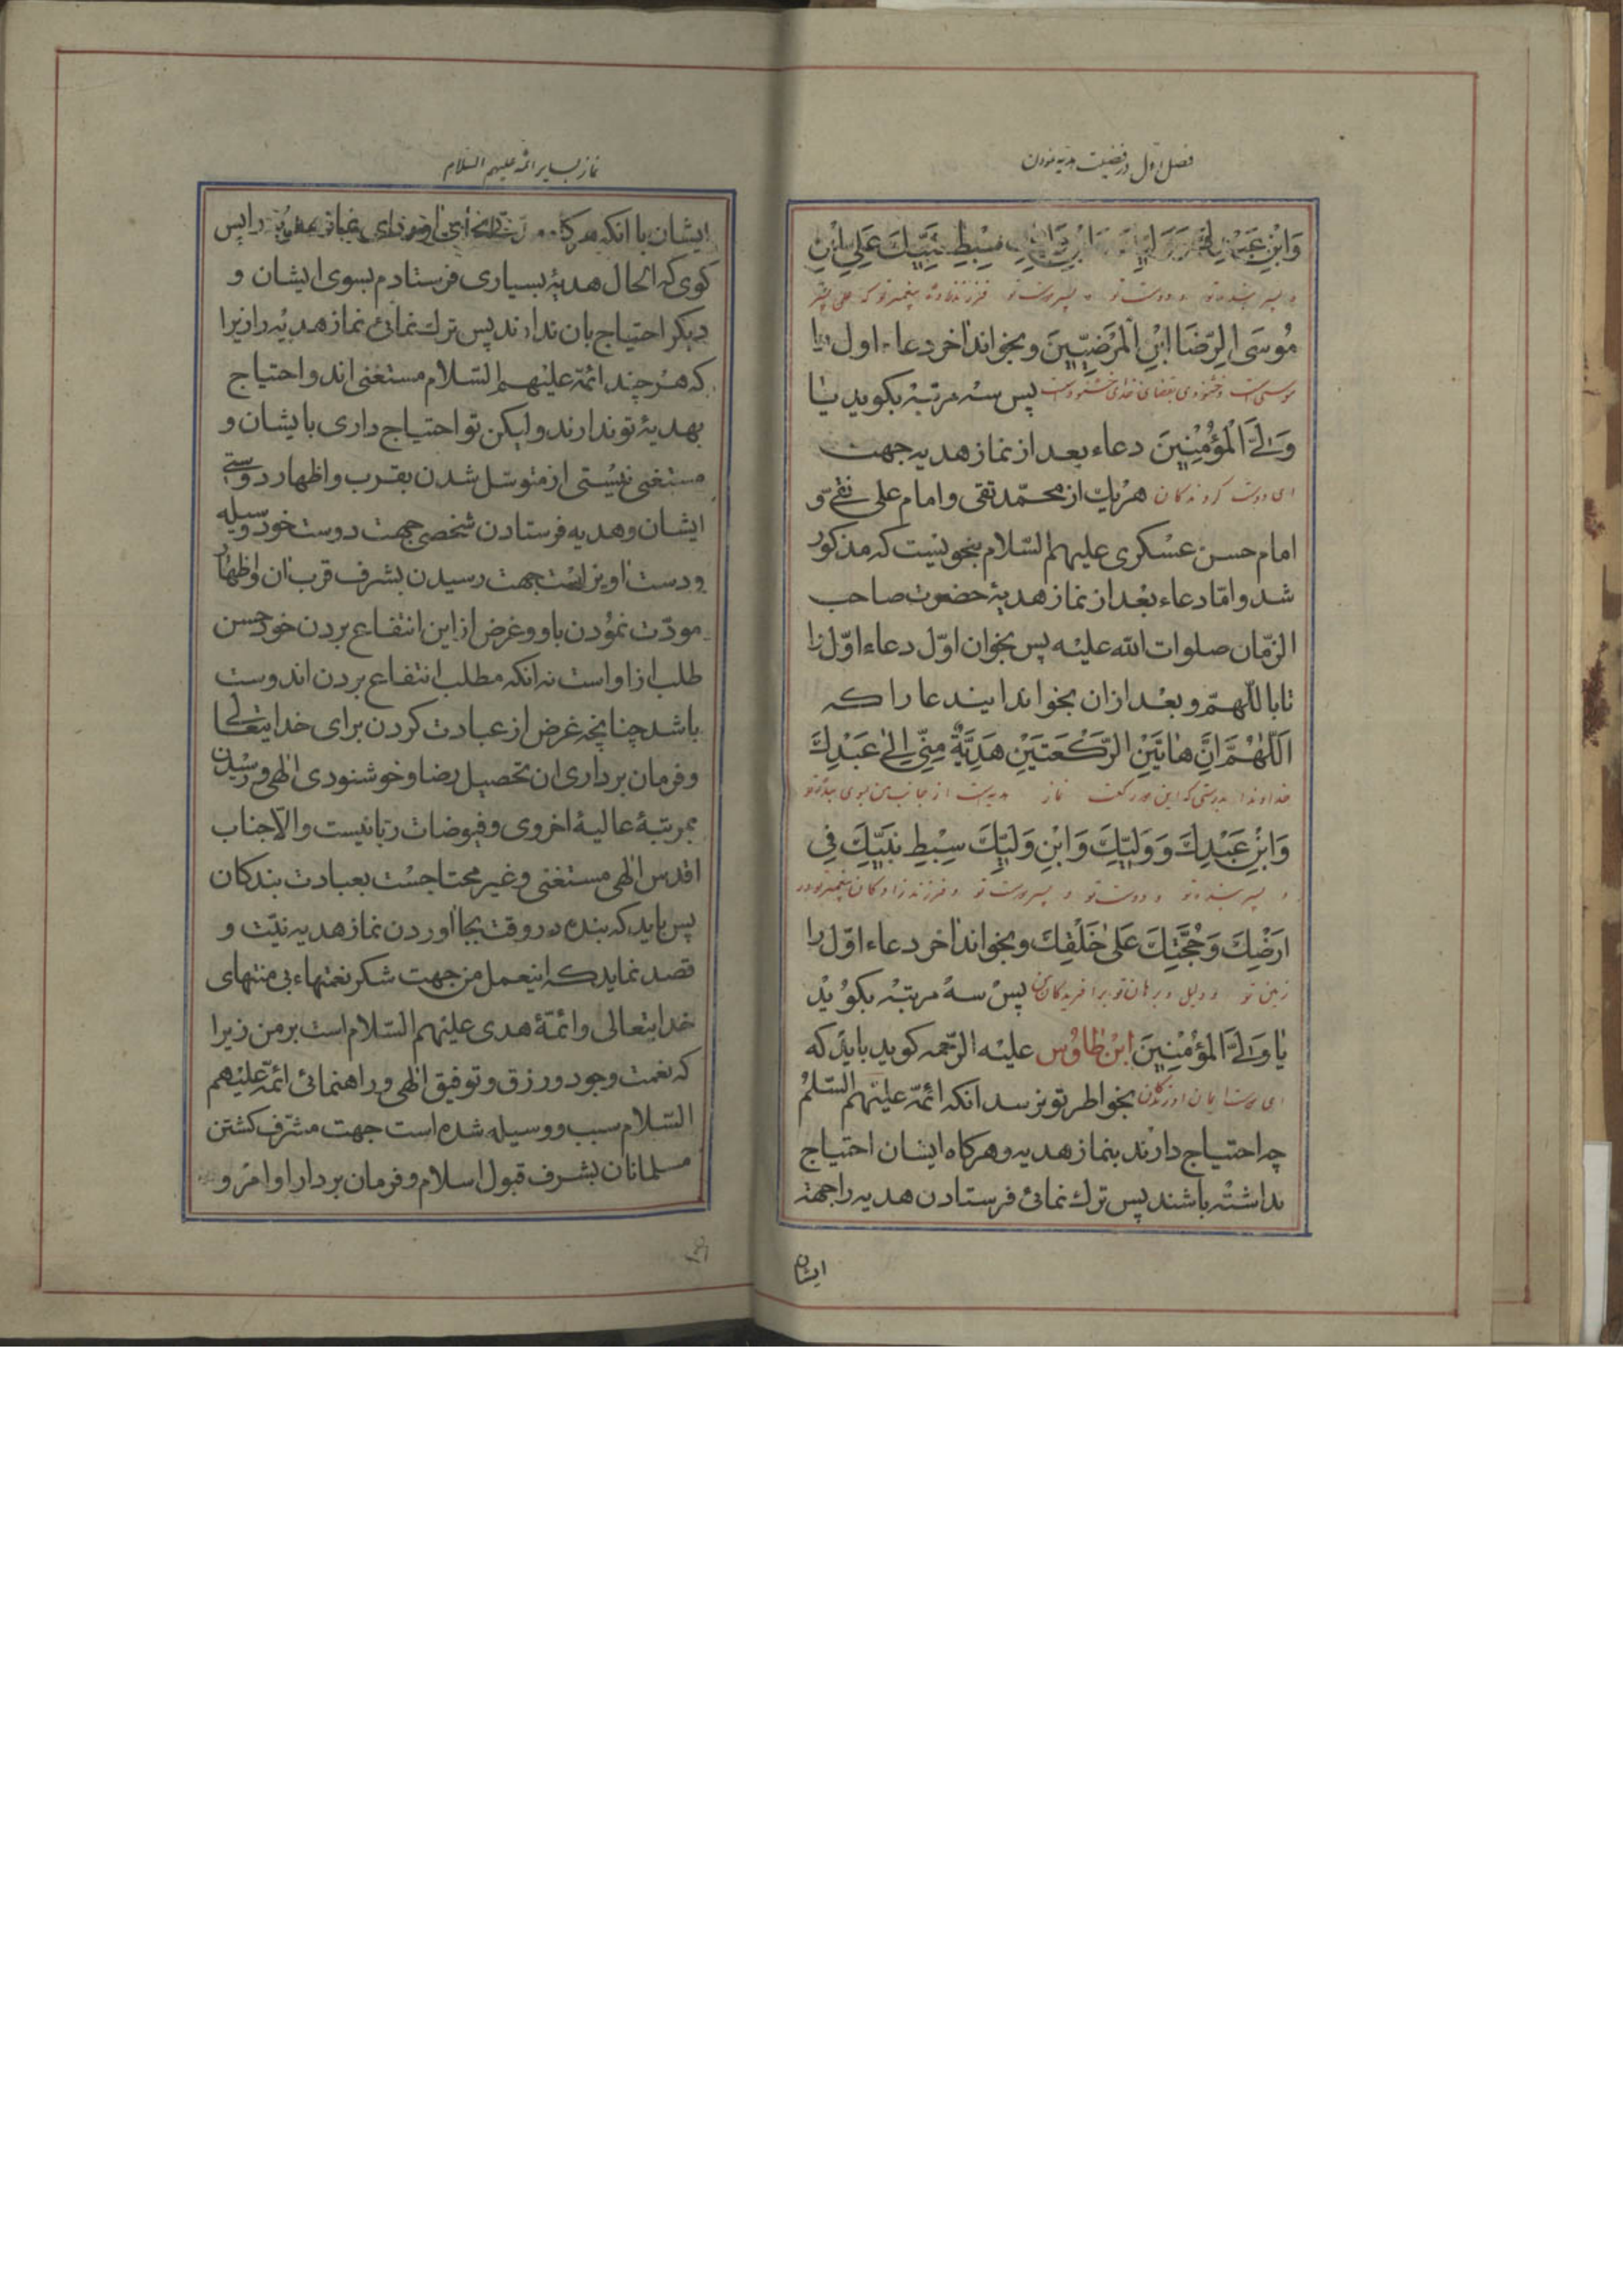 فصل اول در فضیلت هدیه نمودن
وَابْنِ عَبْدِكَ سِبْطِ نَبِیِّكَ عَلِیِّ ابْنِ
و پسر بنده تو و دوست تو و پسر دوست تو فرزندزاده پیغمبر تو که علی پسر
مُوسَی الرِّضَا ابْنِ الْمَرْضِیّینَ وبخواند اخر دعاء اول را
پس سه مرتبه بکوید یا
وَلِیَّ الْمُؤْمِنِینَ دعاء بعد از نماز هدیه جهت
ای دوست کروندکان هر یك از محمّد تقی و امام علی نقی و
امام حسن عسکری علیهم السّلام بنحویست که مذکور
شد وامّا دعاء بعد از نماز هدیهٔ حضرت صاحب
الزّمان صلوات الله علیه پس بخوان اوّل دعاء اوّل را
تا باللّهمّ و بعد ازان بخواند ایندعا را که
اَللّٰهُمَّ اِنَّ هاتَیْنِ الرَّکْعَتَیْنِ هَدِیَّةٌ مِنّی اِلیٰ عَبْدِكَ
خداوندا بدرستی که این دو رکعت نماز هدیه است از جانب من بسوی بنده تو
وَابْنِ عَبْدِكَ وَوَلِیِّكَ وَابْنِ وَلِیِّكَ سِبْطِ نَبِیِّكَ فی
و پسر بنده تو و دوست تو و پسر دوست تو و فرزندزادکان پیغمبر تو در
اَرْضِكَ وَحُجَّتِكَ عَلیٰ خَلْقِكَ وبخواند اخر دعاء اوّل را
زمین تو و دلیل و برهان تو بر افریدکان پس سه مرتبه بکوید
یا وَلِیَّ الْمُؤْمِنِینَ ابن طاوُس علیه الرّحمه کوید باید که
بخواطر تو نرسد انکه ائمّه علیهم السّلم
چه احتیاج دارند بنماز هدیه وهرکاه ایشان احتیاج
نداشته باشند پس ترك نمائی فرستادن هدیه را جهة
ایشان
نماز بسایر ائمّه علیهم السّلام
ایشان با انکه را پس
کوی که الحال هدیهٔ بسیاری فرستادم بسوی ایشان و
دیکر احتیاج بان ندارند پس ترك نمائی نماز هدیه را زیرا
که هر چند ائمّه علیهم السّلام مستغنی اند و احتیاج
بهدیهٔ تو ندارند ولیکن تو احتیاج داری بایشان و
مستغنی نیستی از متوسّل شدن بقرب واظهار دوستی
ایشان وهدیه فرستادن شخصی جهت دوست خود وسیله
ودست اویز است جهت رسیدن بشرف قرب ان واظهار
مودّت نمودن باو و غرض از این انتفاع بردن خود حسن
طلب از اواست نه انکه مطلب انتفاع بردن اندوست
باشد چنانچه غرض از عبادت کردن برای خدایتعالی
وفرمان برداری ان تحصیل رضا وخوشنودی الهی و رسیدن
بمرتبهٔ عالیهٔ اخروی وفیوضات ربانیست والّا جناب
اقدس الهی مستغنی وغیر محتاجست بعبادت بندکان
پس باید که بنده در وقت بجا اوردن نماز هدیه نیّت و
قصد نماید که اینعمل من جهت شکر نعمتهاء بی منتهای
خدایتعالی وائمّهٔ هدی علیهم السّلام است بر من زیرا
که نعمت وجود ورزق وتوفیق الهی وراهنمائی ائمّه علیهم
السّلام سبب و وسیله شده است جهت مشرّف کشتن
مسلمانان بشرف قبول اسلام وفرمان بردار اوامر و